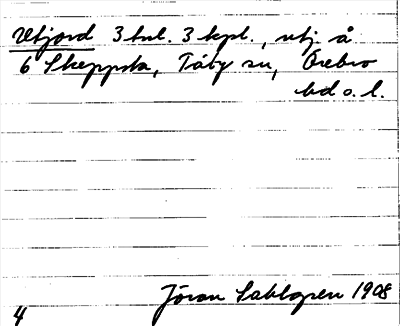 Utjord 3 tnl. 3 kpl., utj. å
6 Skeppsta, Täby sn, Örebro
hd o. l.
Jöran Sahlgren 1908
4